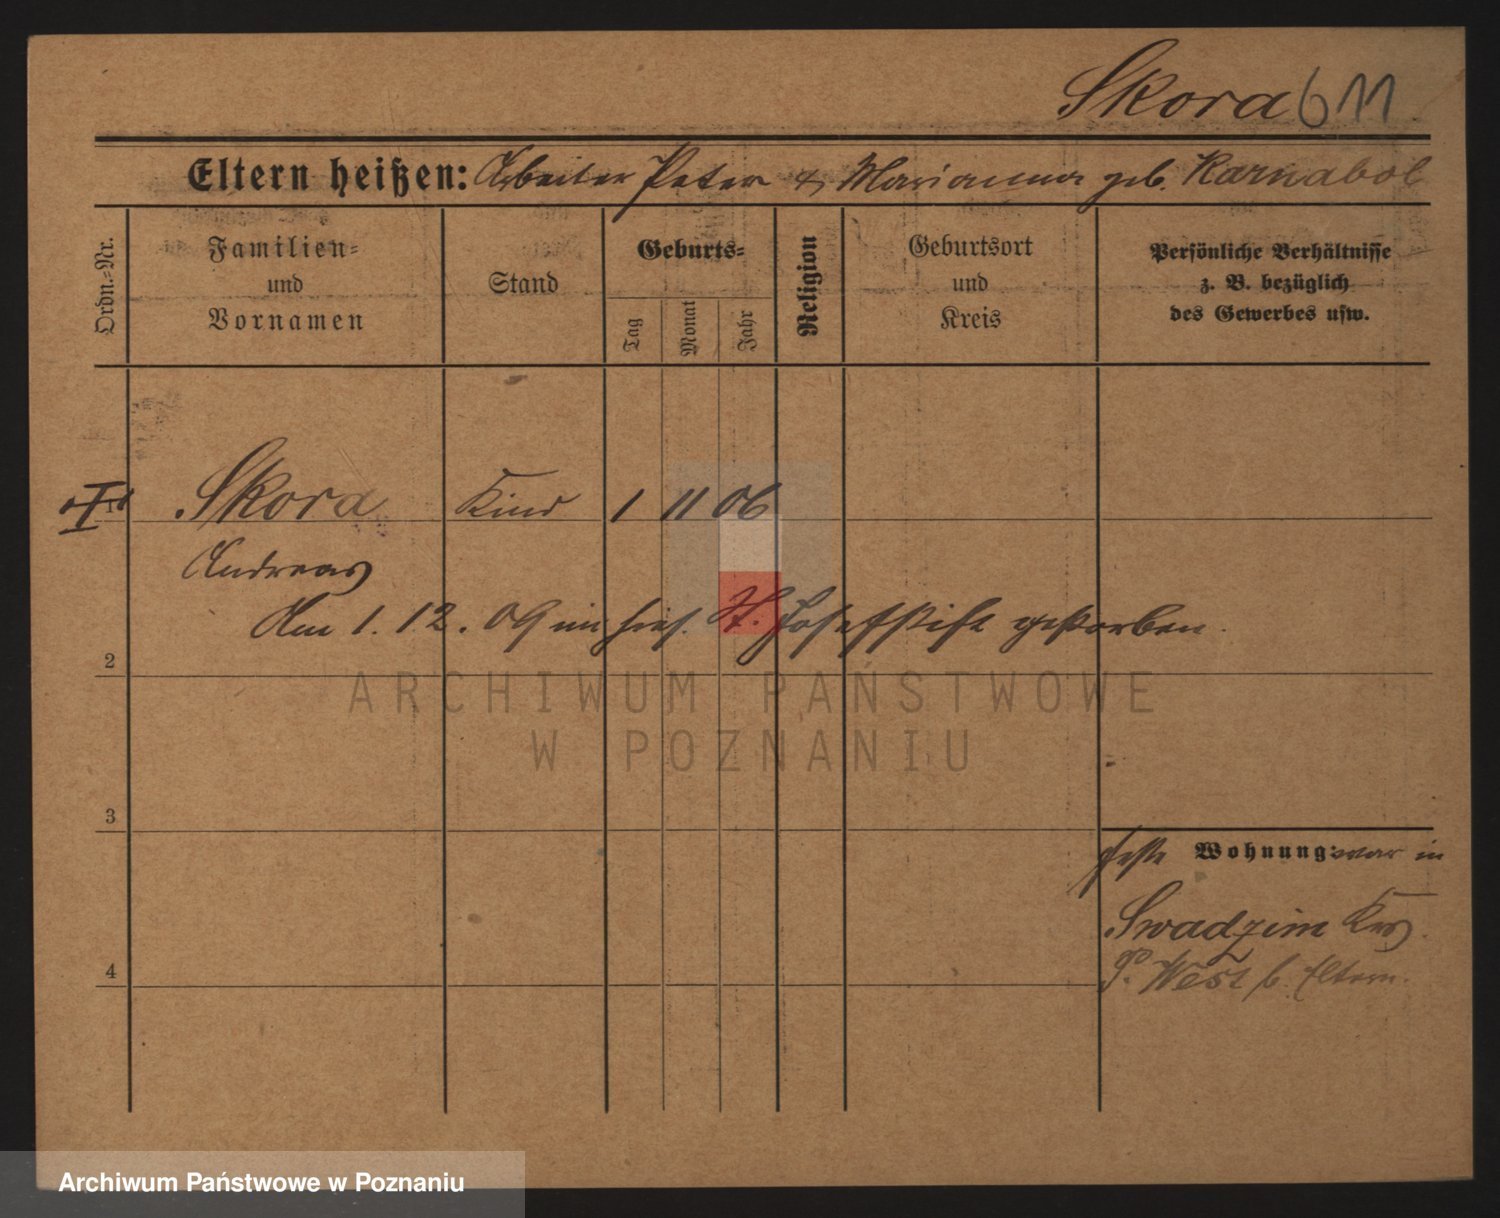 Skora 611
Eltern heißen: Arbeiter Peter & Marianna geb. Karnabol
Ordn.-Nr.
Familien-
und
Vornamen
Stand
Geburts-
Tag
Monat
Jahr
Religion
Geburtsort
und
Kreis
Persönliche Verhältnisse
z. B. bezüglich
des Gewerbes usw.
1 Skora Kind 1 11 06
Andreas
Am 1. 12. 09 im hies. St. Josefstift gestorben.
2
ARCHIWUM PAŃSTWOWE
W POZNANIU
3
feste Wohnung: war in
Swadzim Krs.
P. West b. Eltern.
4
Archiwum Państwowe w Poznaniu